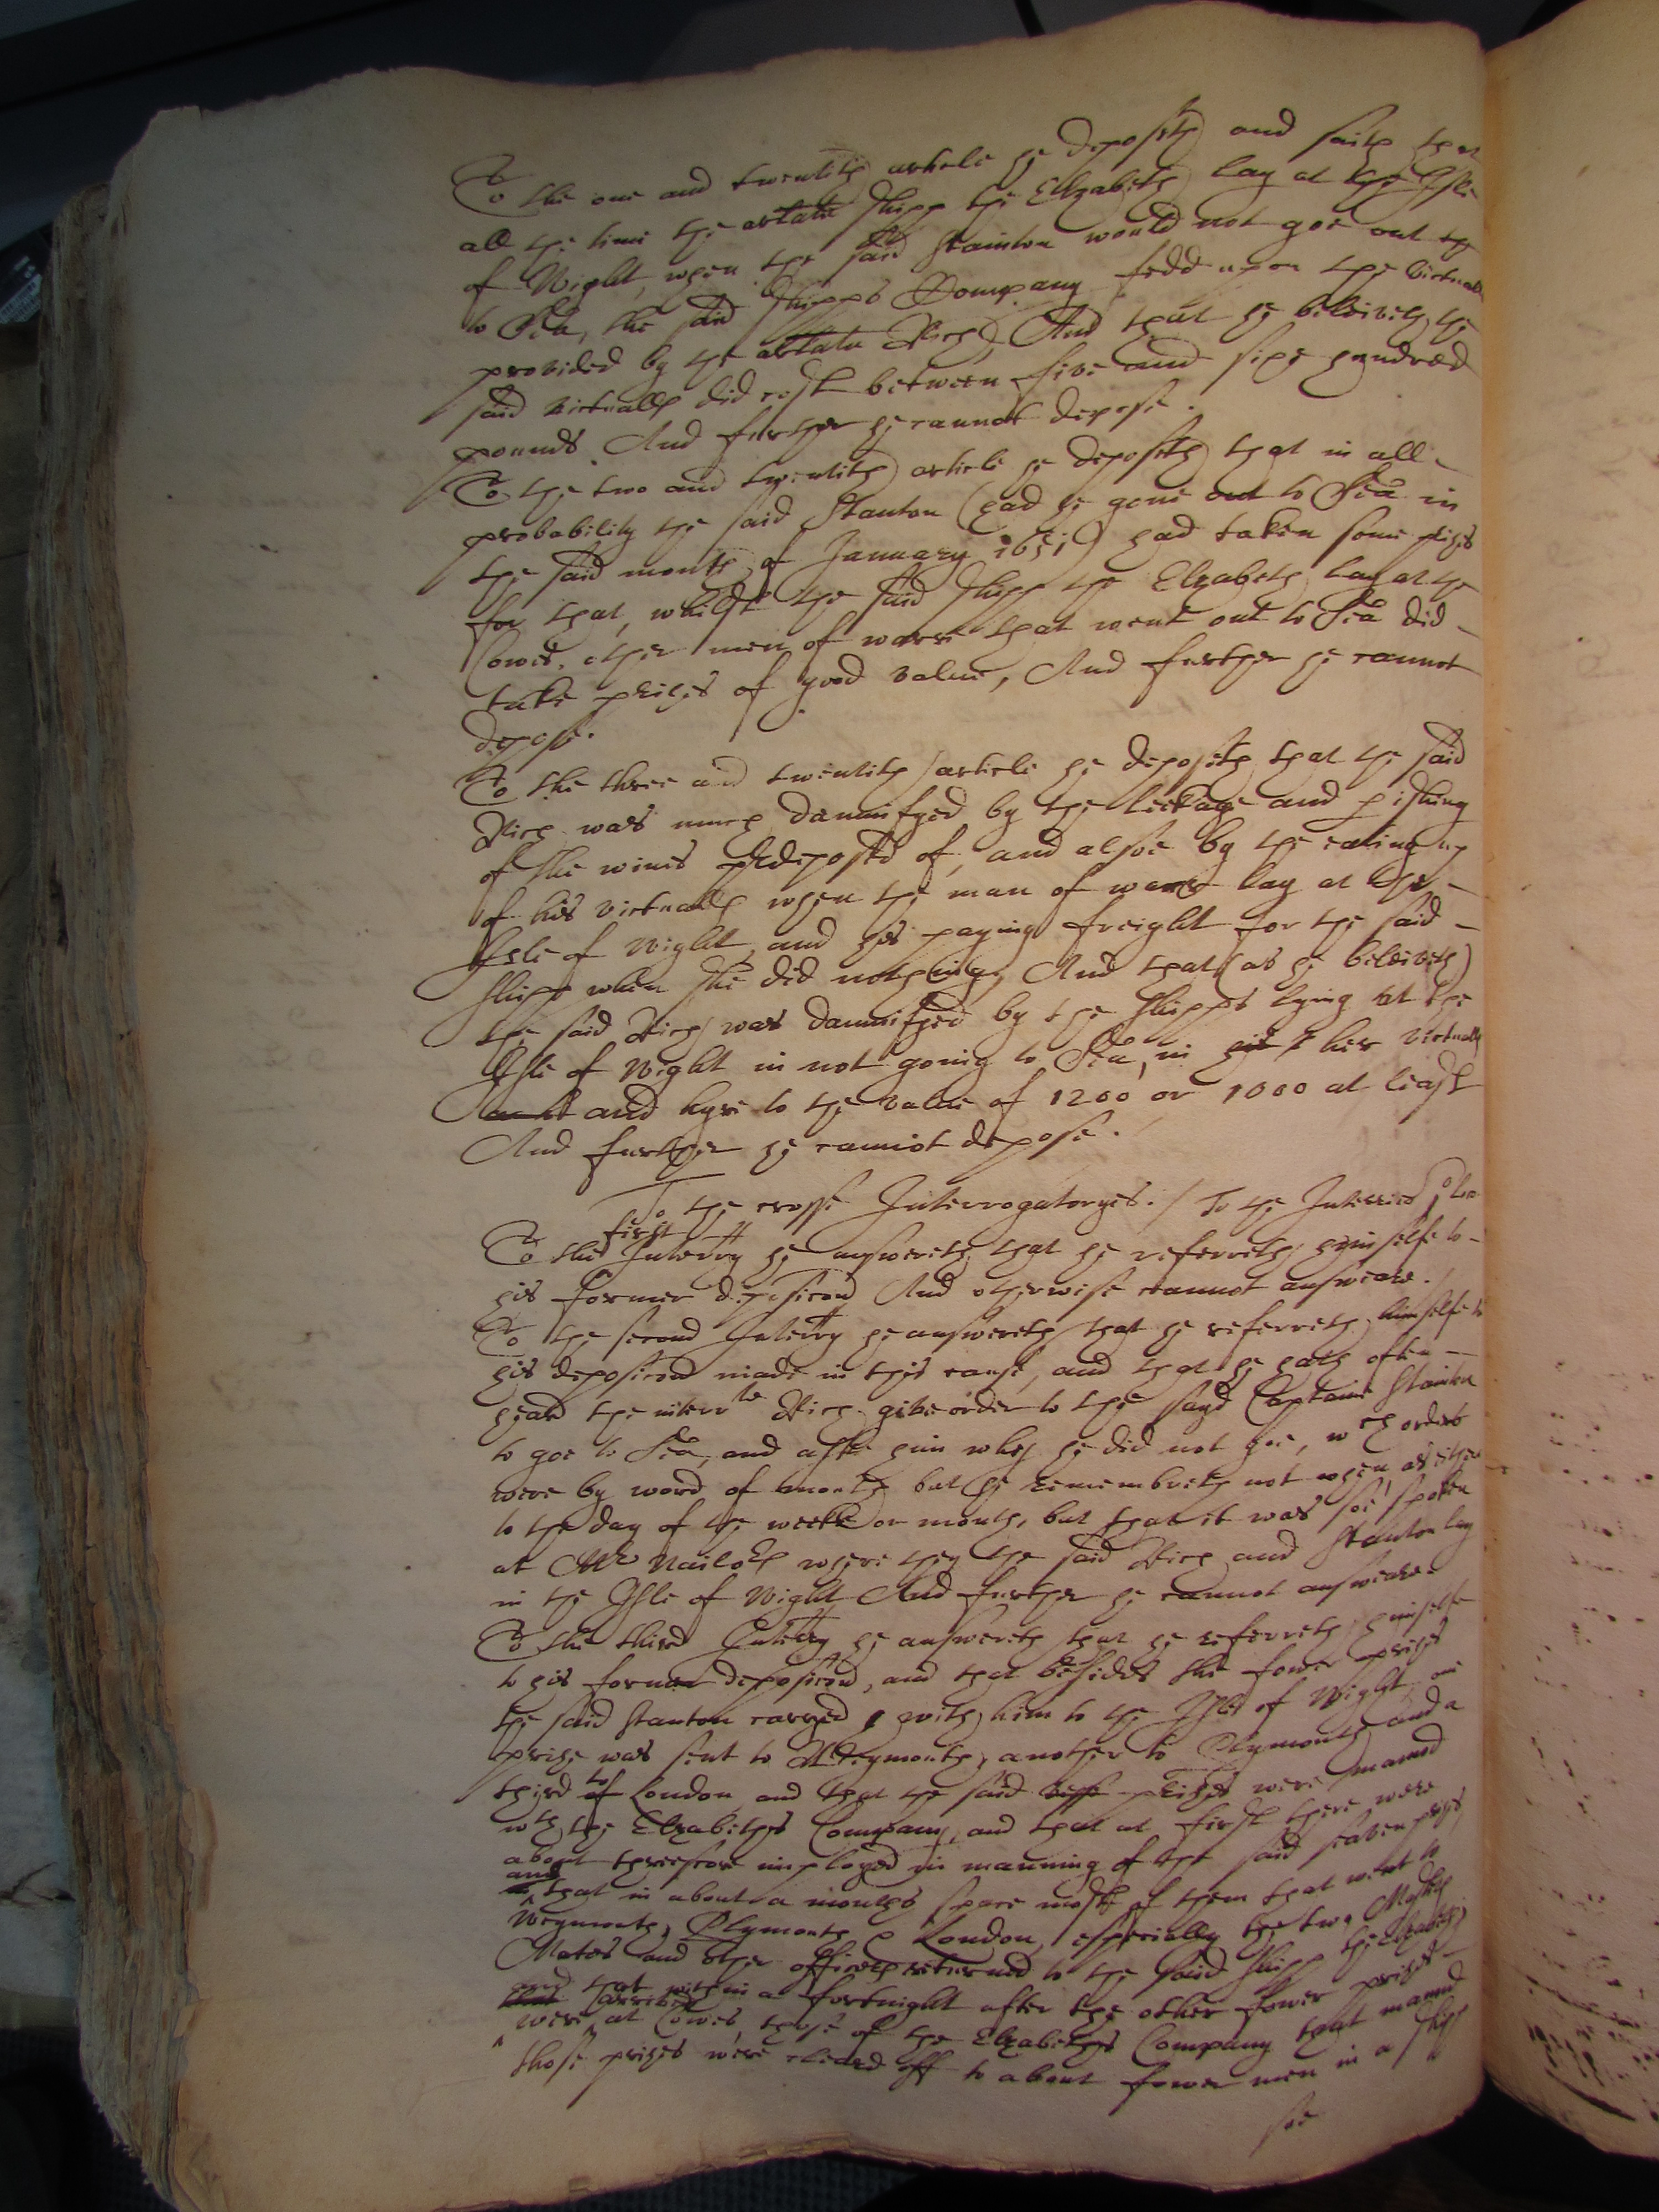 To the one and twentith article he deposeth and saith that
all the time the arlate shipp the Elizabeth lay at the Isle
of Wight, when the said Stainton would not goe out the
to Sea, the said shipps Company fedd upon the victualls
provided by the arlate Rich, And that he beleiveth the
said victualls did cost between five and sixe hundred
pounds. And further he cannot depose.
To the two and twentith article he deposeth that in all
probability the said Stanton (had he gone out to Sea in
the said month of January 1651) had taken some prizes
for that, whilst the said shipp the Elizabeth lay at the
Cowes, other men of warre that went out to Sea did
take prizes of good value, And further he cannot
depose.
To the three and twentith article he deposeth that the said
Rich was much damnifyed by the leekage and pishing
of the wines predeposed of, and alsoe by the eating up
of his victualls when the man of warr lay at the
Isle of Wight, and his paying freight for the said
shipp when she did nothing, And that (as he beleiveth)
the said Rich was damnifyed by the shipps lying at the
Isle of Wight in not going to Sea, in her victualls
and hyre to the value of 1200 or 1000 at least
And further he cannot depose.
To the crosse Interrogatoryes. / To the Interries
To the first Interry he answereth that he referreth himselfe to
his former deposicon And otherwise cannot answeare.
To the second Interry he answereth that he referreth himselfe to
his deposicon made in this cause, and that he hath often
heard the interrte Rich give order to the sayd Captaine Stainton
to goe to Sea, and aske him why he did not goe, wch orders
were by word of mouth but he remembreth not when, as either
to the day of the weeke or month, but that it was soe spoken
at Mr Nailors where they the said Rich and Stanton lay
in the Isle of Wight And further he cannot answeare.
To the third Interry he answereth that he referreth himselfe
to his former deposicon, and that besides the fower prizes
the said Stanton carryed with him to the Isle of Wight, one
prize was sent to Weymouth, another to Plymouth and a
third to London and that the said prizes were manned
wth the Elizabeths Company, and that at first there were
about threescore imployed in manning of the said seaven prizes,
and that in about a months space most of them that went to
Weymouth, Plymouth & London, especially the two Masters
Mates and other officers returned to the said shipp the Elizabeth,
and that within a fortnight after the other fower prizes
were arrived at Cowes, those of the Elizabeths Company that manned
those prizes were cleared off to about fower men in a shipp
soe